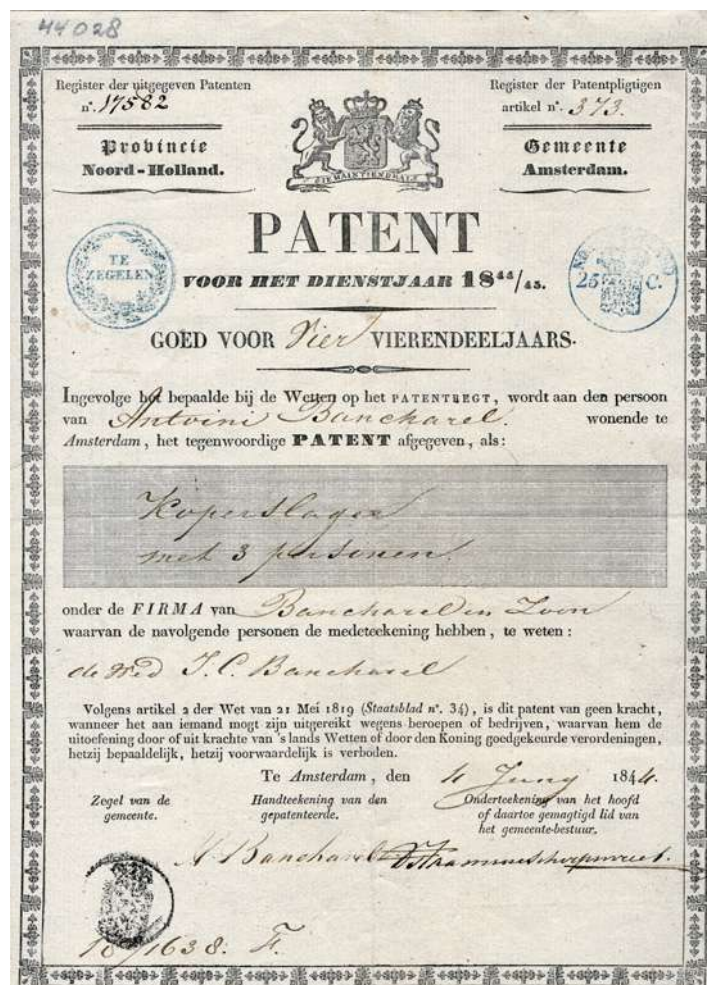 44028
Register der uitgegeven Patenten
n°. 17582
Provincie
Noord-Holland.
Register der Patentpligtigen
artikel n°. 373.
Gemeente
Amsterdam.
JE MAINTIENDRAI
PATENT
TE
ZEGELEN
VOOR HET DIENSTJAAR 18⁴⁴/₄₅.
25 C.
GOED VOOR Vier VIERENDEELJAARS.
Ingevolge het bepaalde bij de Wetten op het PATENTREGT, wordt aan den persoon
van Antoini Bancharel. wonende te
Amsterdam, het tegenwoordige PATENT afgegeven, als:
Koperslager
met 3 personen.
onder de FIRMA van Bancharel en Zoon
waarvan de navolgende personen de medeteekening hebben, te weten:
de Wed J. C. Bancharel
Volgens artikel 2 der Wet van 21 Mei 1819 (Staatsblad n°. 34), is dit patent van geen kracht,
wanneer het aan iemand mogt zijn uitgereikt wegens beroepen of bedrijven, waarvan hem de
uitoefening door of uit krachte van 's lands Wetten of door den Koning goedgekeurde verordeningen,
hetzij bepaaldelijk, hetzij voorwaardelijk is verboden.
Te Amsterdam, den 4 Juny 1844.
Zegel van de
gemeente.
Handteekening van den
gepatenteerde.
Onderteekening van het hoofd
of daartoe gemagtigd lid van
het gemeente-bestuur.
A Bancharel
1638. F.